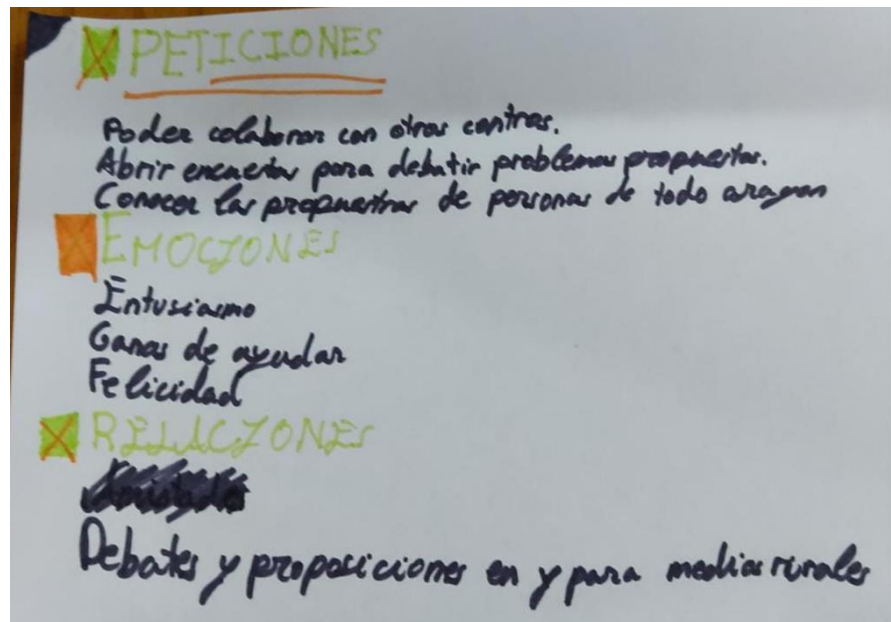 PETICIONES
Poder colaborar con otros centros.
Abrir encuestas para debatir problemas propuestos.
Conocer las propuestas de personas de todo aragon
EMOCIONES
Entusiasmo
Ganas de ayudar
Felicidad
RELACIONES
Debates y proposiciones en y para medios rurales